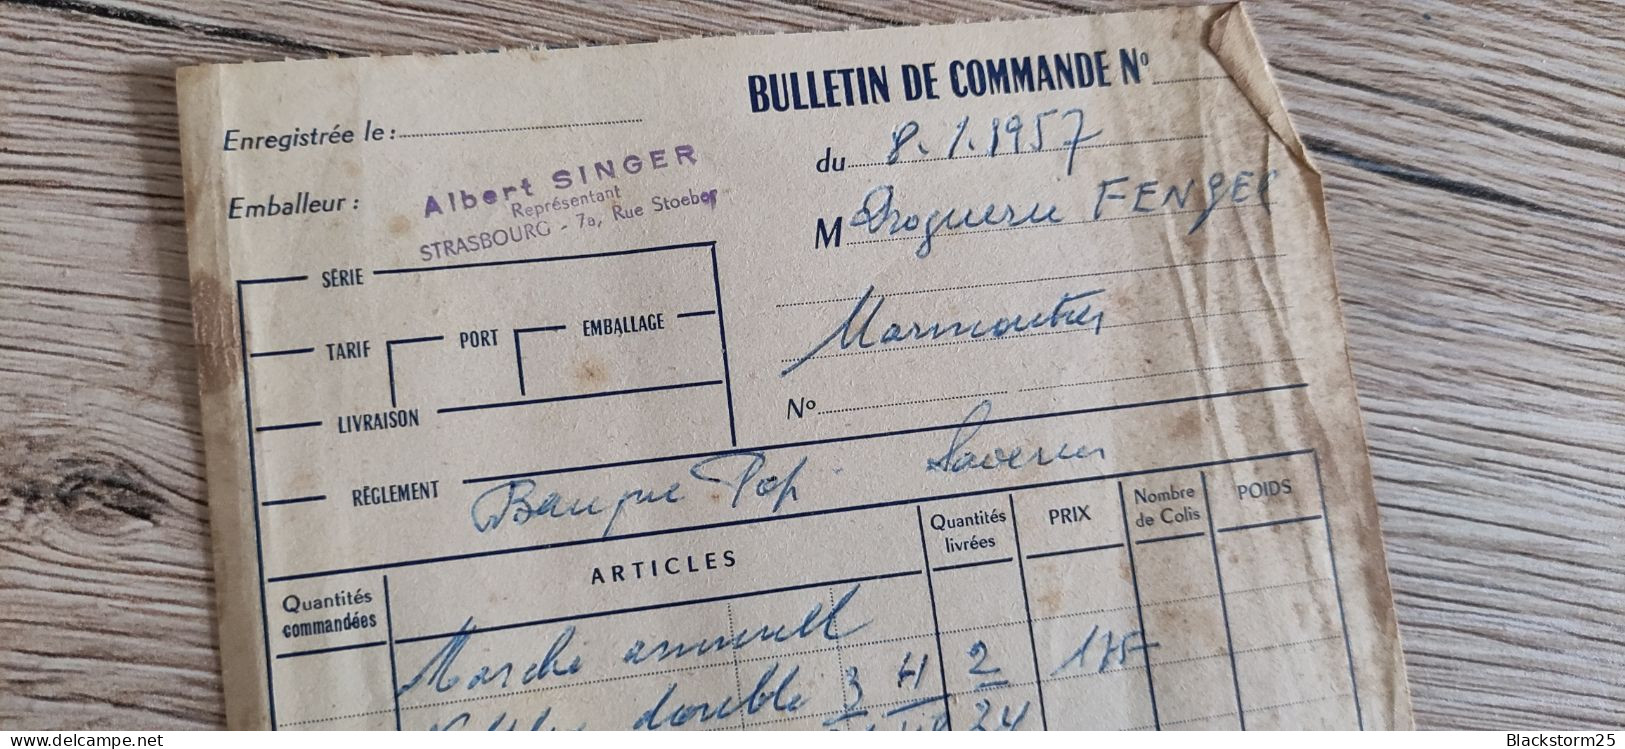 BULLETIN DE COMMANDE Nº
Enregistrée le :
du 8.1.1957
Emballeur :
Albert SINGER
Représentant
STRASBOURG - 7a, Rue Stoeber
M Droguerie FENGER
SÉRIE
Marmoutier
TARIF PORT EMBALLAGE
Nº
LIVRAISON
RÈGLEMENT Banque Pop. Saverne
Quantités commandées
ARTICLES
Quantités livrées
PRIX
Nombre de Colis
POIDS
Marché annuel
double 3 4 2 175
24
www.delcampe.net
Blackstorm25